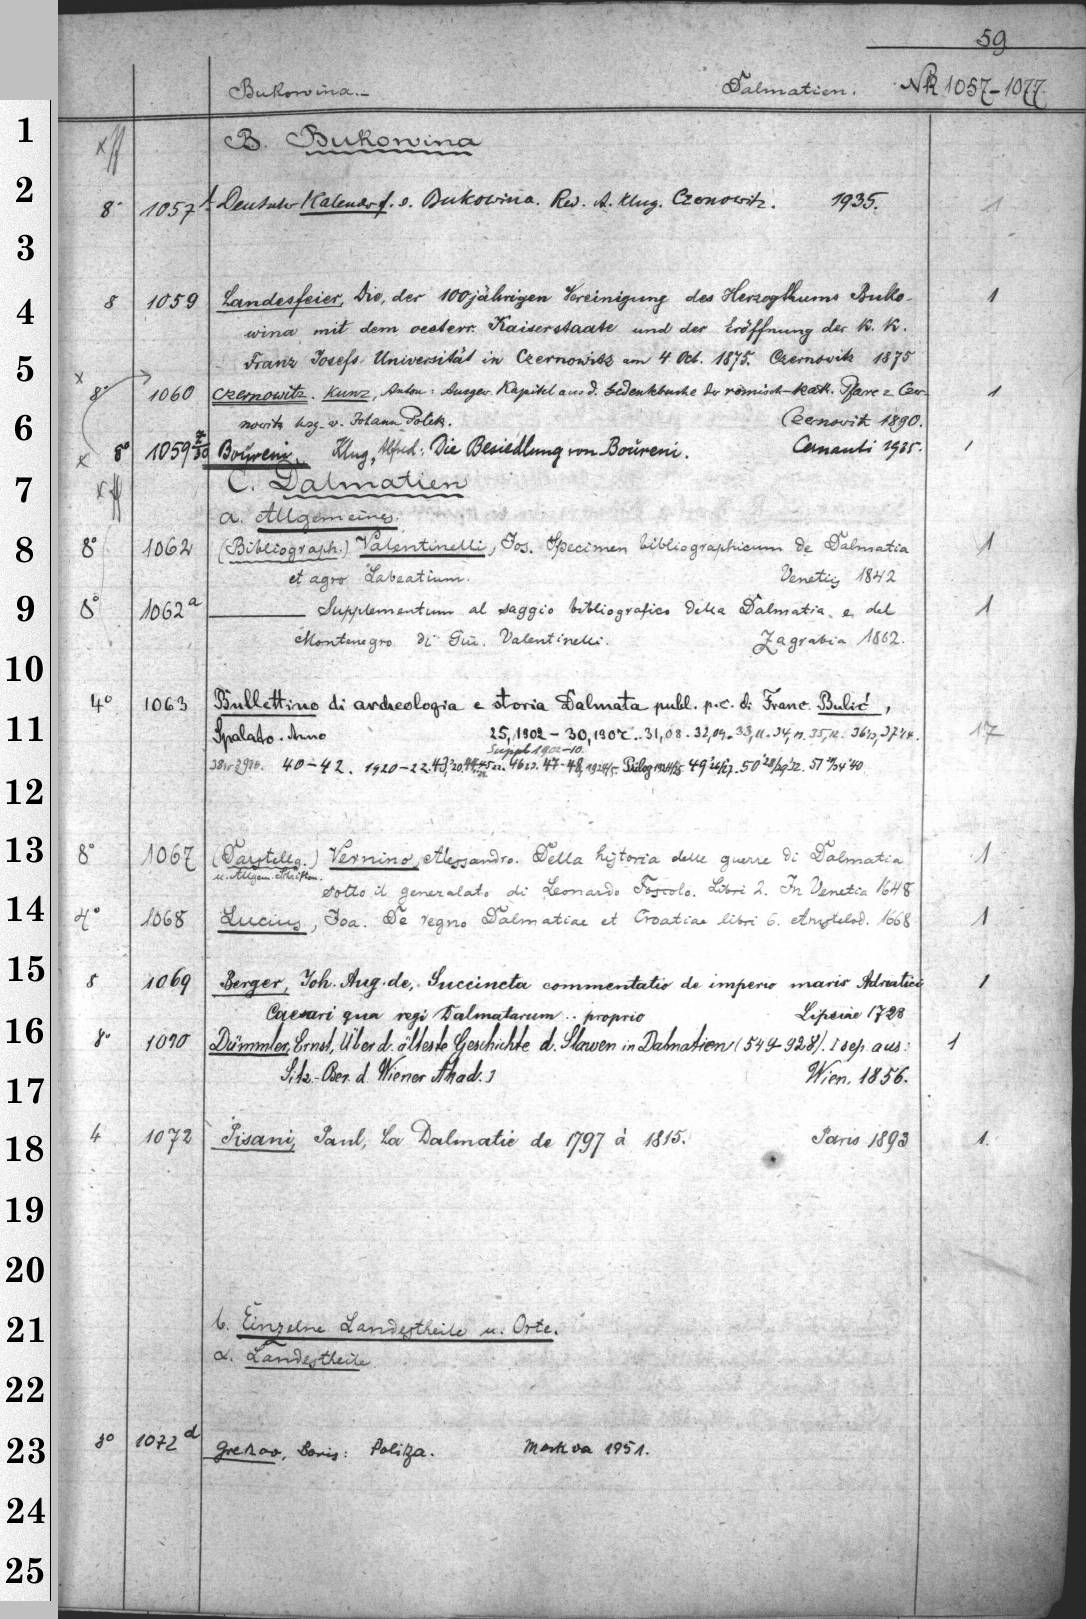 59
Bukowina.- Dalmatien. NR 1057-1077
1
B. Bukowina
2
8° 1057 Deutscher Kalender f. d. Bukowina. Red. A. Klug. Czernowitz. 1935. 1
3
8 1059 Landesfeier, Die, der 100jährigen Vereinigung des Herzogthums Buko- 1
4
wina mit dem oesterr. Kaiserstaate und der Eröffnung der K. K.
5
Franz Josefs Universität in Czernowitz am 4 Oct. 1875. Czernowitz 1875
x 8° 1060 Czernowitz. Kunz, Anton: Ausgew. Kapitel aus d. Gedenkbuche der römisch-kath. Pfarre z. Czer- 1
6
nowitz hsg. v. Johann Polek. Czernowitz 1890.
x 8° 1059 Boŭreni, Klug, Alfred: Die Besiedlung von Boŭreni. Cernauti 1935. 1
7
C. Dalmatien
a. Allgemeines.
8
8° 1062 (Bibliograph.) Valentinelli, Jos. Specimen bibliographicum de Dalmatia 1
et agro Labeatium. Venetiis 1842
9
8° 1062a Supplementum al saggio bibliografico della Dalmatia e del 1
Montenegro di Giu. Valentinelli. Zagrabia 1862.
10
4° 1063 Bullettino di archeologia e storia Dalmata publ. p. c. di Franc. Bulić,
11
Spalato. Anno 25, 1902 - 30, 1907. 31, 08. 32, 09. 33, 11. 34, 35, 12. 17
Suppl 1902-10.
40-42. 1920-22. 47-48,
12
13
8° 1067 (Darstellg.) Vernino, Alessandro. Della historia delle guerre di Dalmatia 1
u. Allgem. Schriften.
sotto il generalato di Leonardo Foscolo. Libri 2. In Venetia 1648
14
4° 1068 Lucius, Joa. De regno Dalmatiae et Croatiae libri 6. Amstelod. 1668 1
15
8 1069 Berger, Joh. Aug. de, Succincta commentatio de imperio maris Adriatici 1
Caesari qua regi Dalmatarum .. proprio Lipsiae 1723
16
8° 1070 Dümmler, Ernst, Über d. älteste Geschichte d. Slawen in Dalmatien (549-928). [sep. aus: 1
17
Sitz.-Ber. d. Wiener Akad.] Wien. 1856.
4 1072 Pisani, Paul, La Dalmatie de 1797 à 1815. Paris 1893 1.
18
19
20
21
b. Einzelne Landestheile u. Orte.
α. Landestheile
22
8° 1072d Grekov, Boris: Polica. Moskva 1951.
23
24
25